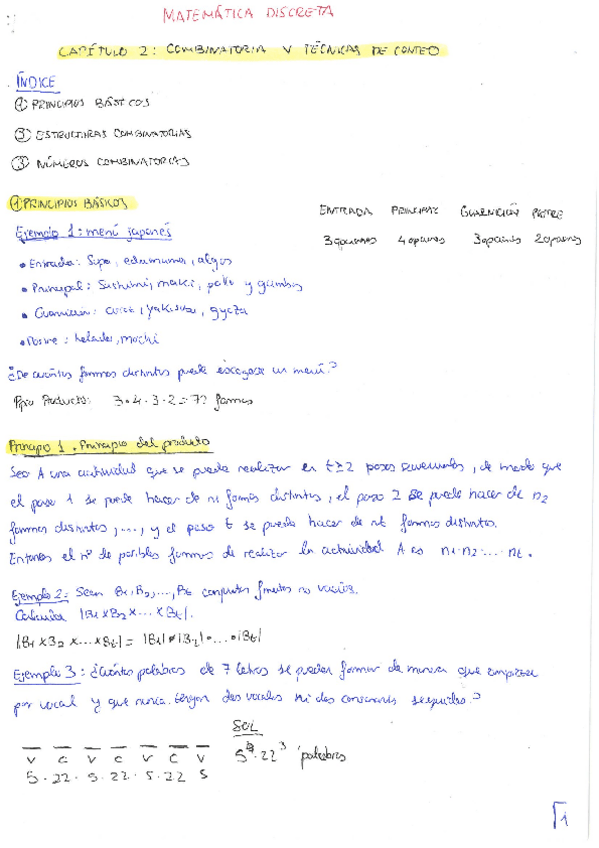 MATEMÁTICA DISCRETA
CAPÍTULO 2: COMBINATORIA Y TÉCNICAS DE CONTEO
ÍNDICE
① PRINCIPIOS BÁSICOS
② ESTRUCTURAS COMBINATORIAS
③ NÚMEROS COMBINATORIOS
① PRINCIPIOS BÁSICOS
ENTRADA PRINCIPAL GUARNICIÓN POSTRE
3 opciones 4 opciones 3 opciones 2 opciones
Ejemplo 1: menú japonés
• Entrada: Sopa, edamame, algas
• Principal: Sashimi, maki, pollo y gambas
• Guarnición: arroz, yakisoba, gyoza
• Postre: helado, mochi
¿De cuántas formas distintas puede escogerse un menú?
Ppio Producto: 3·4·3·2=72 formas
Principio 1. Principio del producto
Sea A una actividad que se puede realizar en t≥2 pasos sucesivos, de modo que
el paso 1 se puede hacer de n1 formas distintas, el paso 2 se puede hacer de n2
formas distintas, ..., y el paso t se puede hacer de nt formas distintas.
Entonces el nº de posibles formas de realizar la actividad A es n1·n2·...·nt.
Ejemplo 2: Sean B1, B2, ..., Bt conjuntos finitos no vacíos.
Calcula |B1×B2×...×Bt|.
|B1×B2×...×Bt| = |B1|·|B2|·...·|Bt|
Ejemplo 3: ¿Cuántas palabras de 7 letras se pueden formar de manera que empiece
por vocal y que nunca tengan dos vocales ni dos consonantes seguidas?
SOL
V C V C V C V 5⁴·22³ palabras
5·22·5·22·5·22 5
1